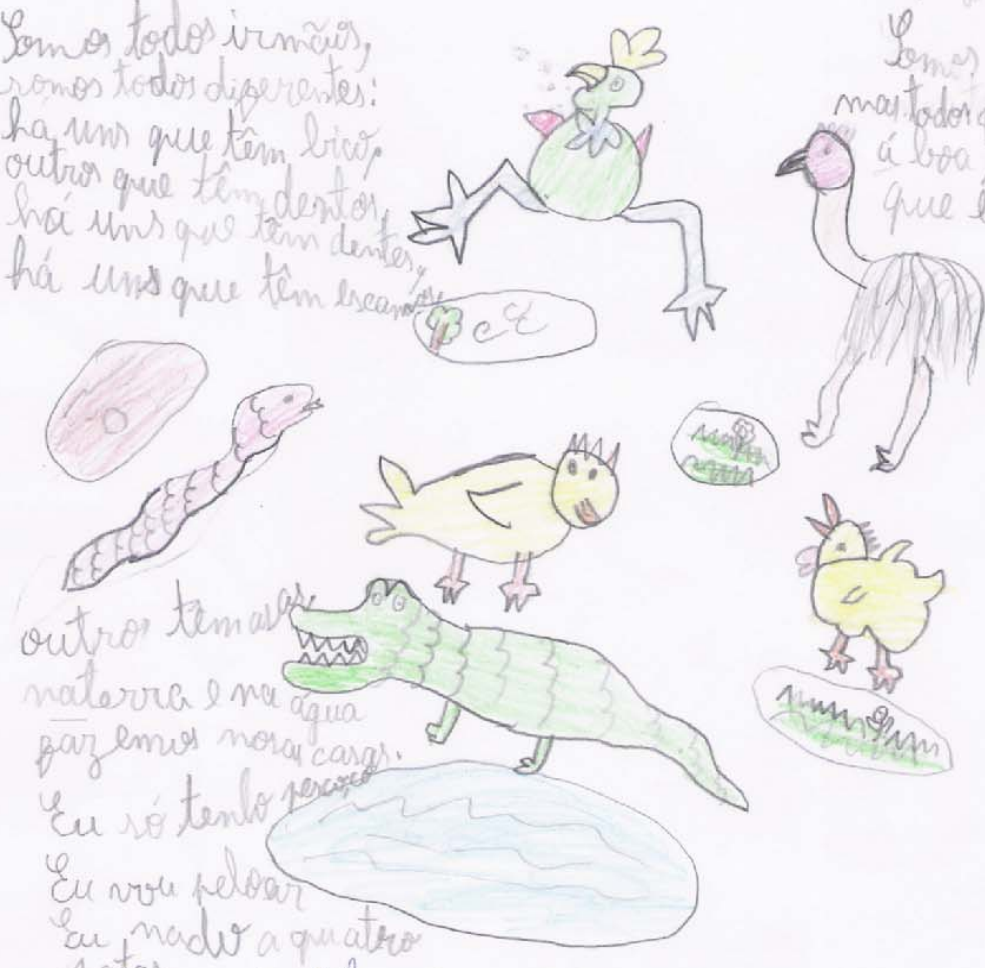 Somos todos irmãos,
somos todos diferentes:
há uns que têm bico,
outros que têm dentos,
há uns que têm dentes,
há uns que têm escamas,
outros têm asas,
na terra e na água
fazemos nosas casas.
Eu só tenho pescoço
Eu vou pelo ar
Eu nado a quatro
patas
Somos
mas todos
á boa
que é